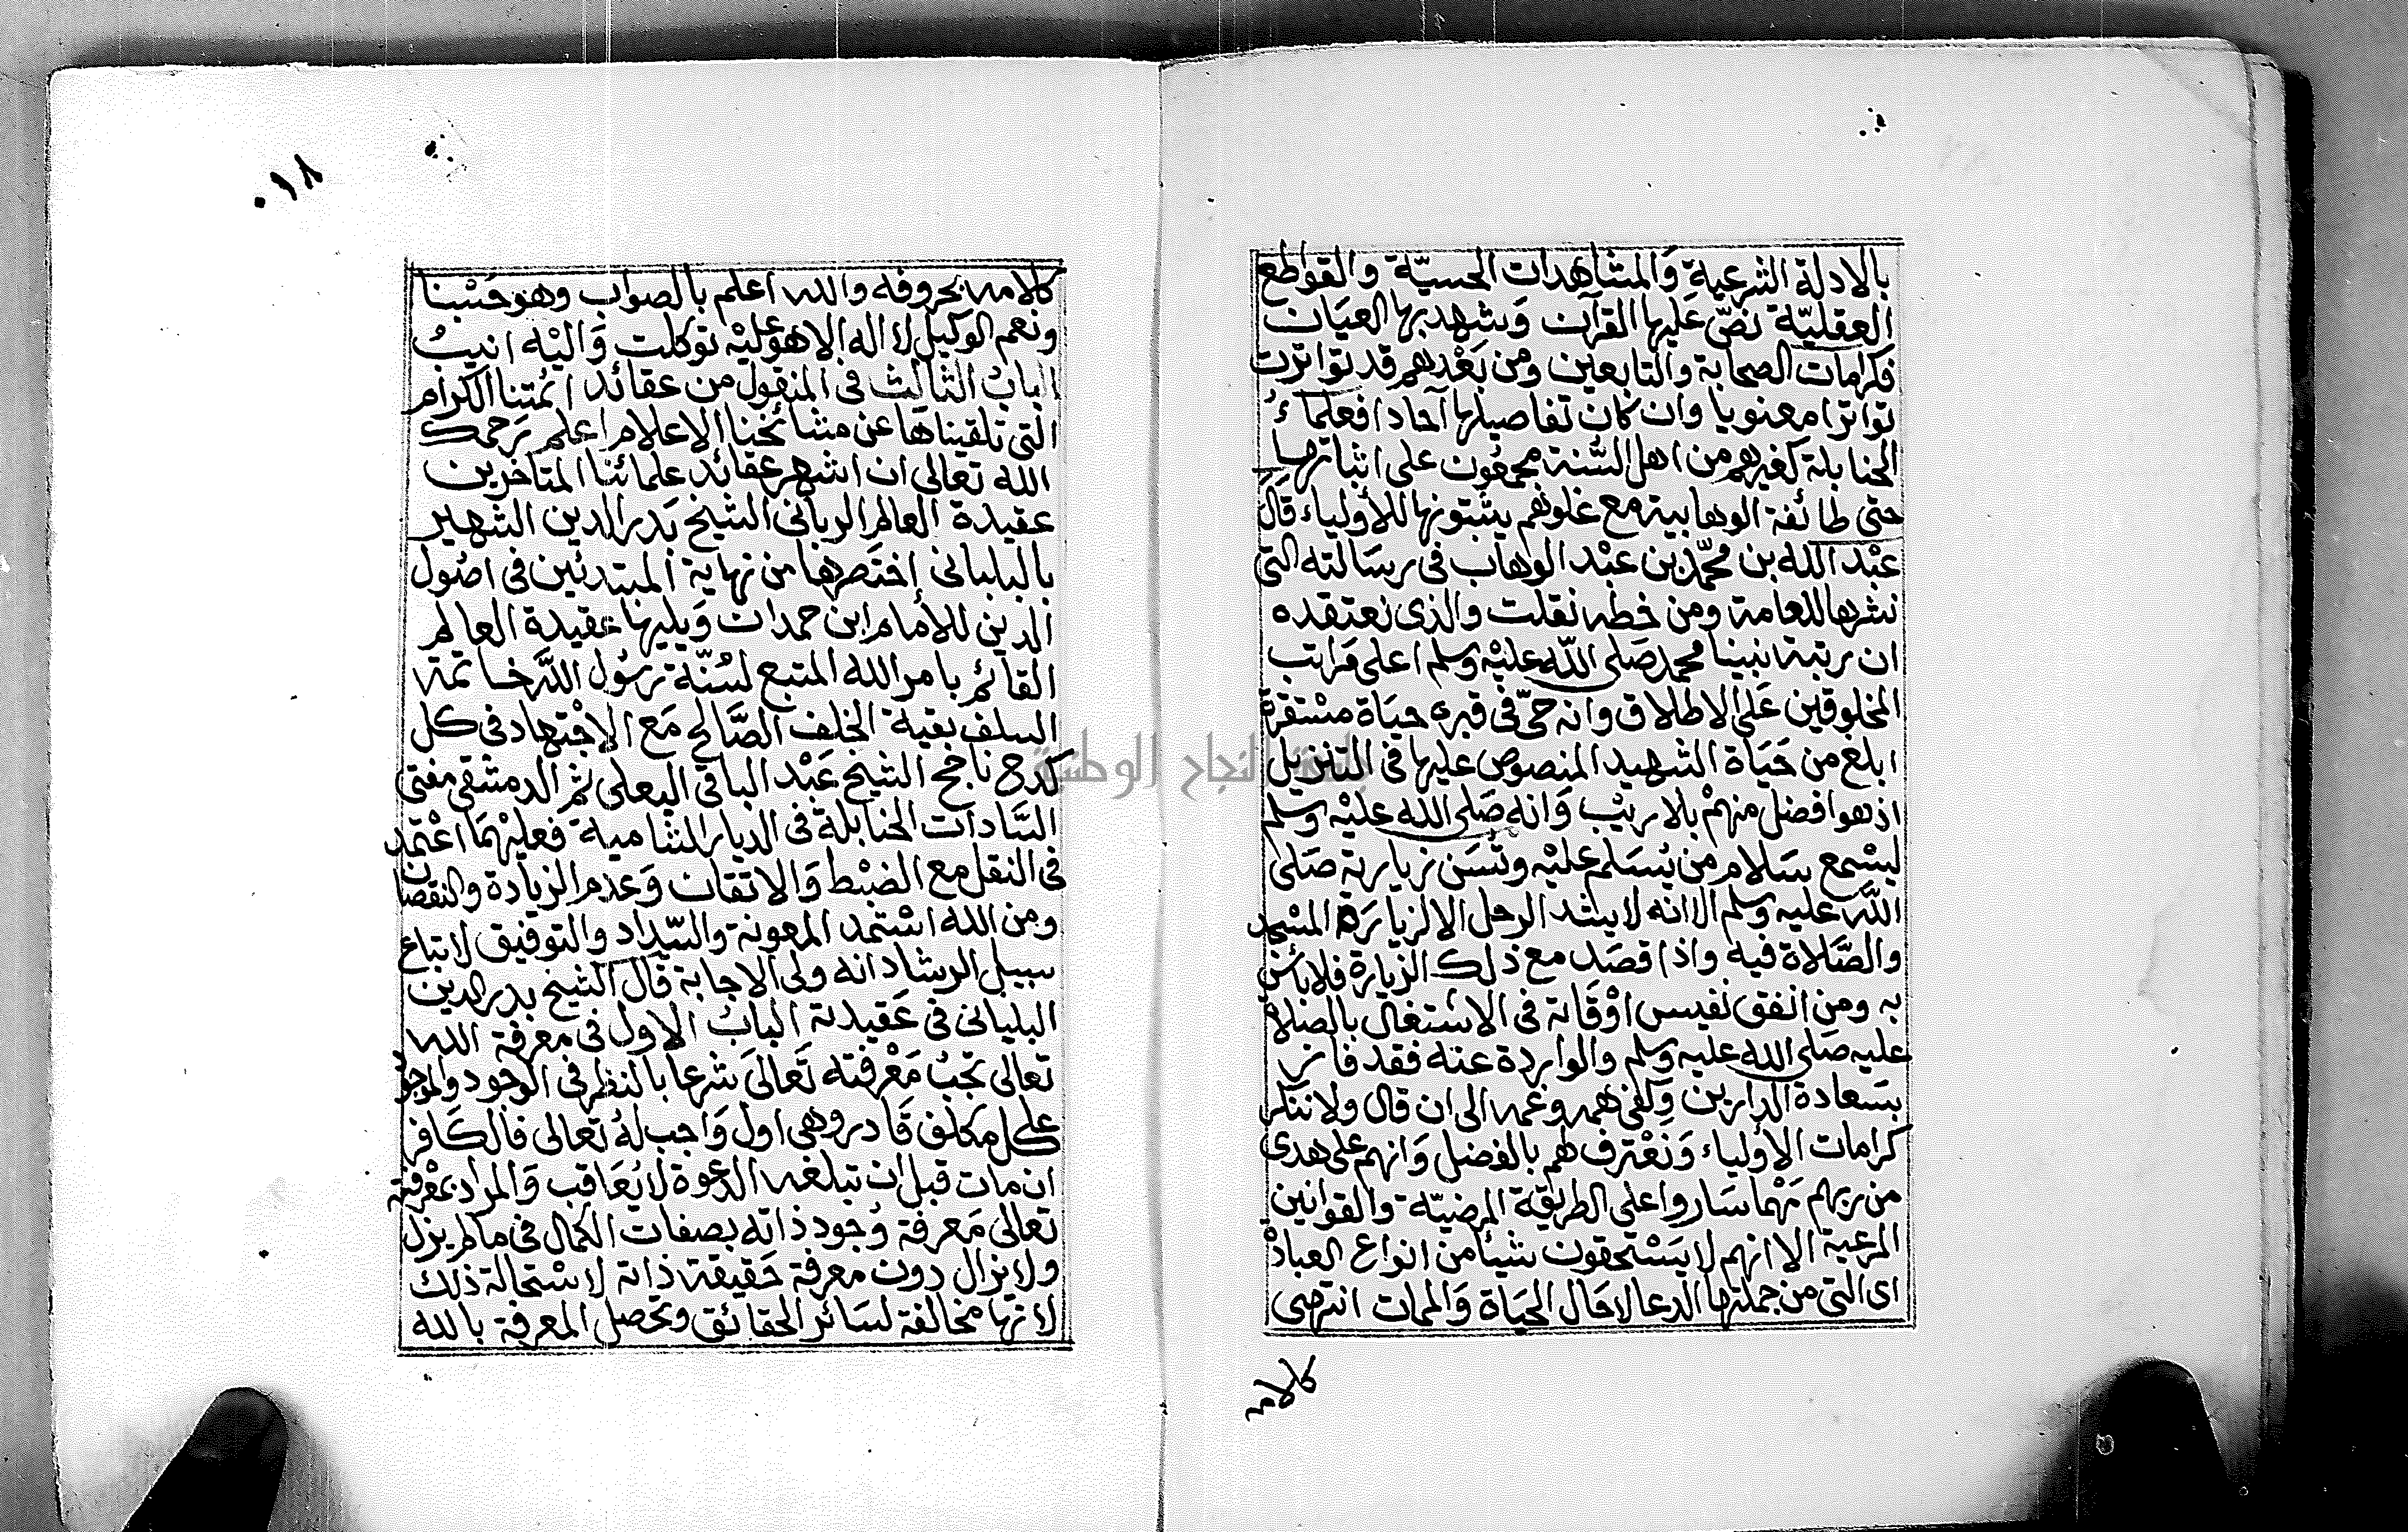 بالادلة الشرعية والمشاهدات الحسيّة والقواطع
العقليّة نصّ عَليها القرآن وَيشهد بها العيَان
فكرامات الصحابة والتابعين ومن بَعْدهم قد تواترت
تواترا معنويا وان كان تفاصيلها آحادا فعلماءُ
الحنابلة كغيرهم من اهل السُّنة مجمعُون على اثباتها
حتى طائفة الوهابية مع غلوهم يثبتونها للأولياء قَالَ
عبْد الله بن محمّد بن عبْد الوهاب في رسَالته التي
نشرها للعامة ومن خطه نقلت والذى نعتقده
ان رتبة نبينا محمد صَلى اللّه عليْه وسلم اعلى مَراتب
المخلوقين عَلى الاطلاق وانه حىّ في قبره حيَاة مسْتقرة
ابلغ من حَيَاة الشهيد المنصوص عليها في التنزيل
اذ هوا فضل منهمْ بلا ريْب وَانه صَلى الله عليْه وسلم
ليسْمع سَلام من يُسَلم عليْه وتُسَن زيارته صَلى
اللّه عليه وسلم الا انه لا يشد الرحل الا لزيارَة المسْجد
والصَّلاة فيه واذا قصَد مع ذلك الزيارة فلا بأس
به ومن انفق نفيس اوْقَاته في الاشتغال بالصلاة
عليه صَلى الله عليه وسلم والواردة عنه فقد فاز
بسَعادة الدارين وكفى همه وغمه الى ان قال ولا ننكر
كرامات الأولياء وَنعْترف لهم بالفضل وَانهم على هدى
من ربهم مَهْما سَاروا على الطريقة المرضيّة والقوانين
المرعية الا انهم لا يسْتحقون شيئا من انواع العبادْ
اى التى من جملتها الدعا لا حَال الحيَاة وَالممات انتهى
كلامه
٠١٨
كلامه بحروفه والله اعلم بالصواب وهو حَسْبنا
ونعم الوكيل لا اله الا هو عليْه توكلت وَاليْه انيبُ
البابُ الثالث في المنقول من عقائد ائمتنا الكرام
التى تلقيناها عن مشائخنا الاعلام اعلم رَحمك
الله تعالى ان اشهر عقائد علمائنا المتاخرين
عقيدة العالم الرباني الشيخ بَدر الدين الشهير
بالبلباني إختصَرها من نهاية المبتدئين في اصُول
الدين للامام ابن حمدان وَيليها عقيدة العالم
القائم بامر الله المتبع لسُنّة رسُول اللّه خاتمة
السلف بقية الخلف الصَّالح مَع الاجْتهاد في كل
كدح ناجح الشيخ عَبْد الباقى البعلى ثم الدمشقى مفتى
السَّادات الحنابلة في الديار الشامية فعليْهمَا اعْتمد
في النقل مع الضبْط وَالاتقان وَعدم الزيادة والنقصان
ومن الله اسْتمد المعونة والسّداد والتوفيق لاتباع
سبيل الرشاد انه ولى الاجابة قال الشيخ بدر الدين
البلباني في عَقيدته البابُ الاول في معرفة الله
تعالى تجبُ مَعْرفته تَعالىَ شرعا بالنظر في الوجود والموجود
على كل مكلف قَادر وهى اول وَاجب لهُ تعالى فالكَافر
ان مات قبل ان تبلغه الدعوة لا يُعَاقب وَالمراد بمَعْرفته
تعالى مَعرفة وُجود ذاته بصفات الكمال في ما لم يزل
ولا يزال دون معرفة حَقيقة ذاته لاسْتحالة ذلك
لانها مخالفة لسَائر الحقائق وتحصل المعرفة بالله
جامعة النجاح الوطنية